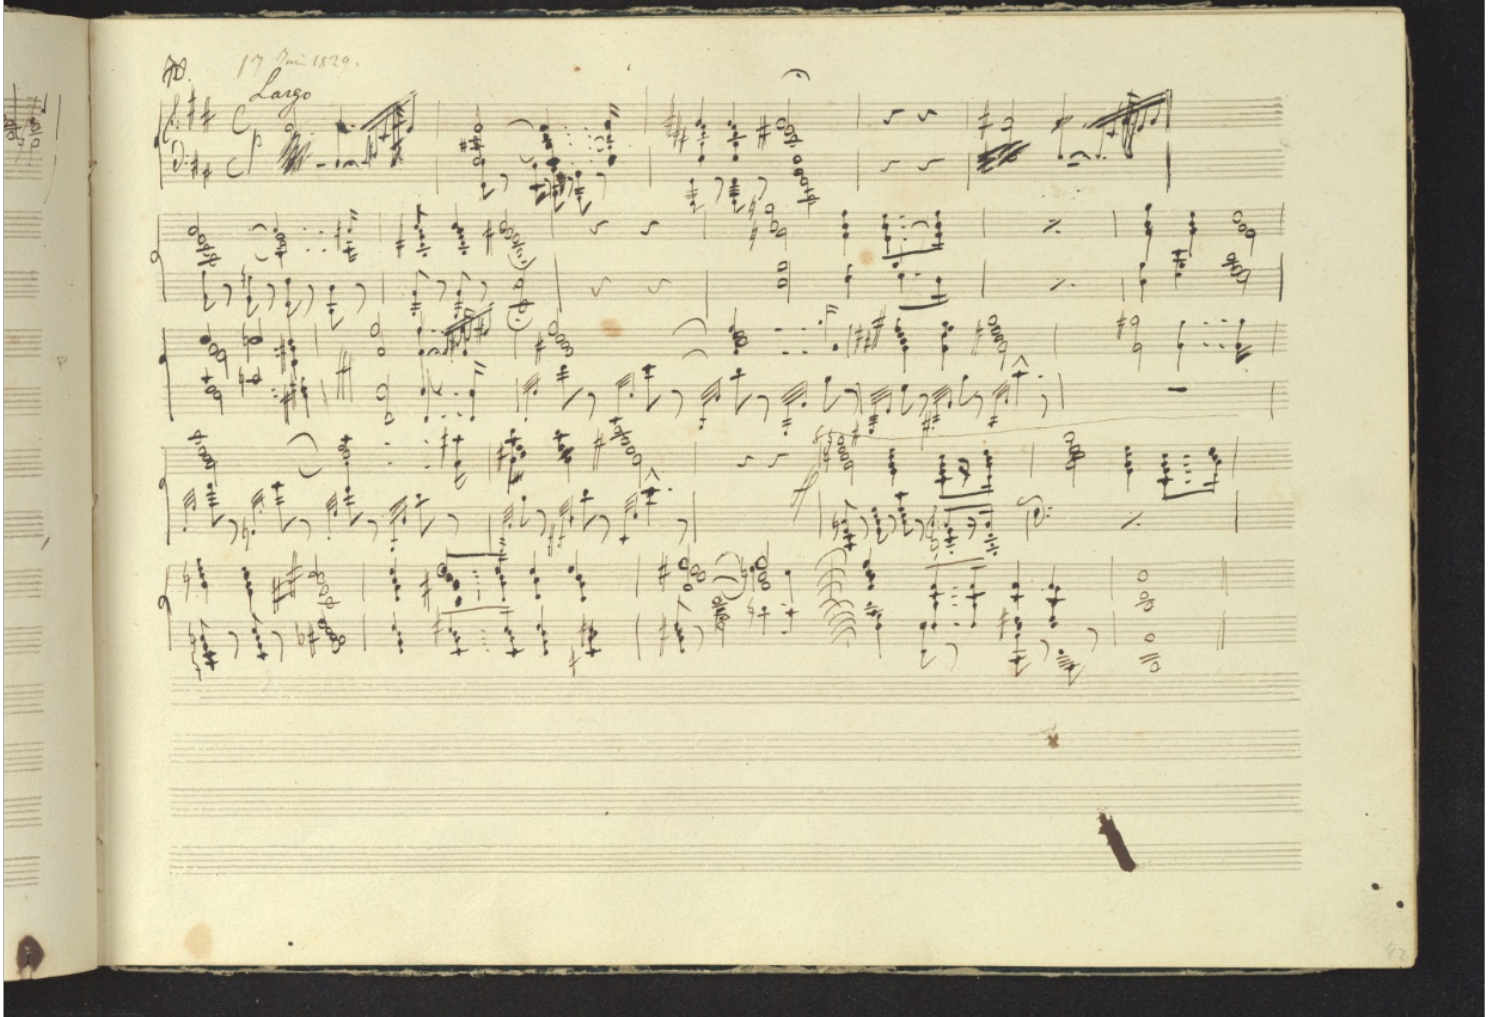 17 Juni 1829.
Largo
42